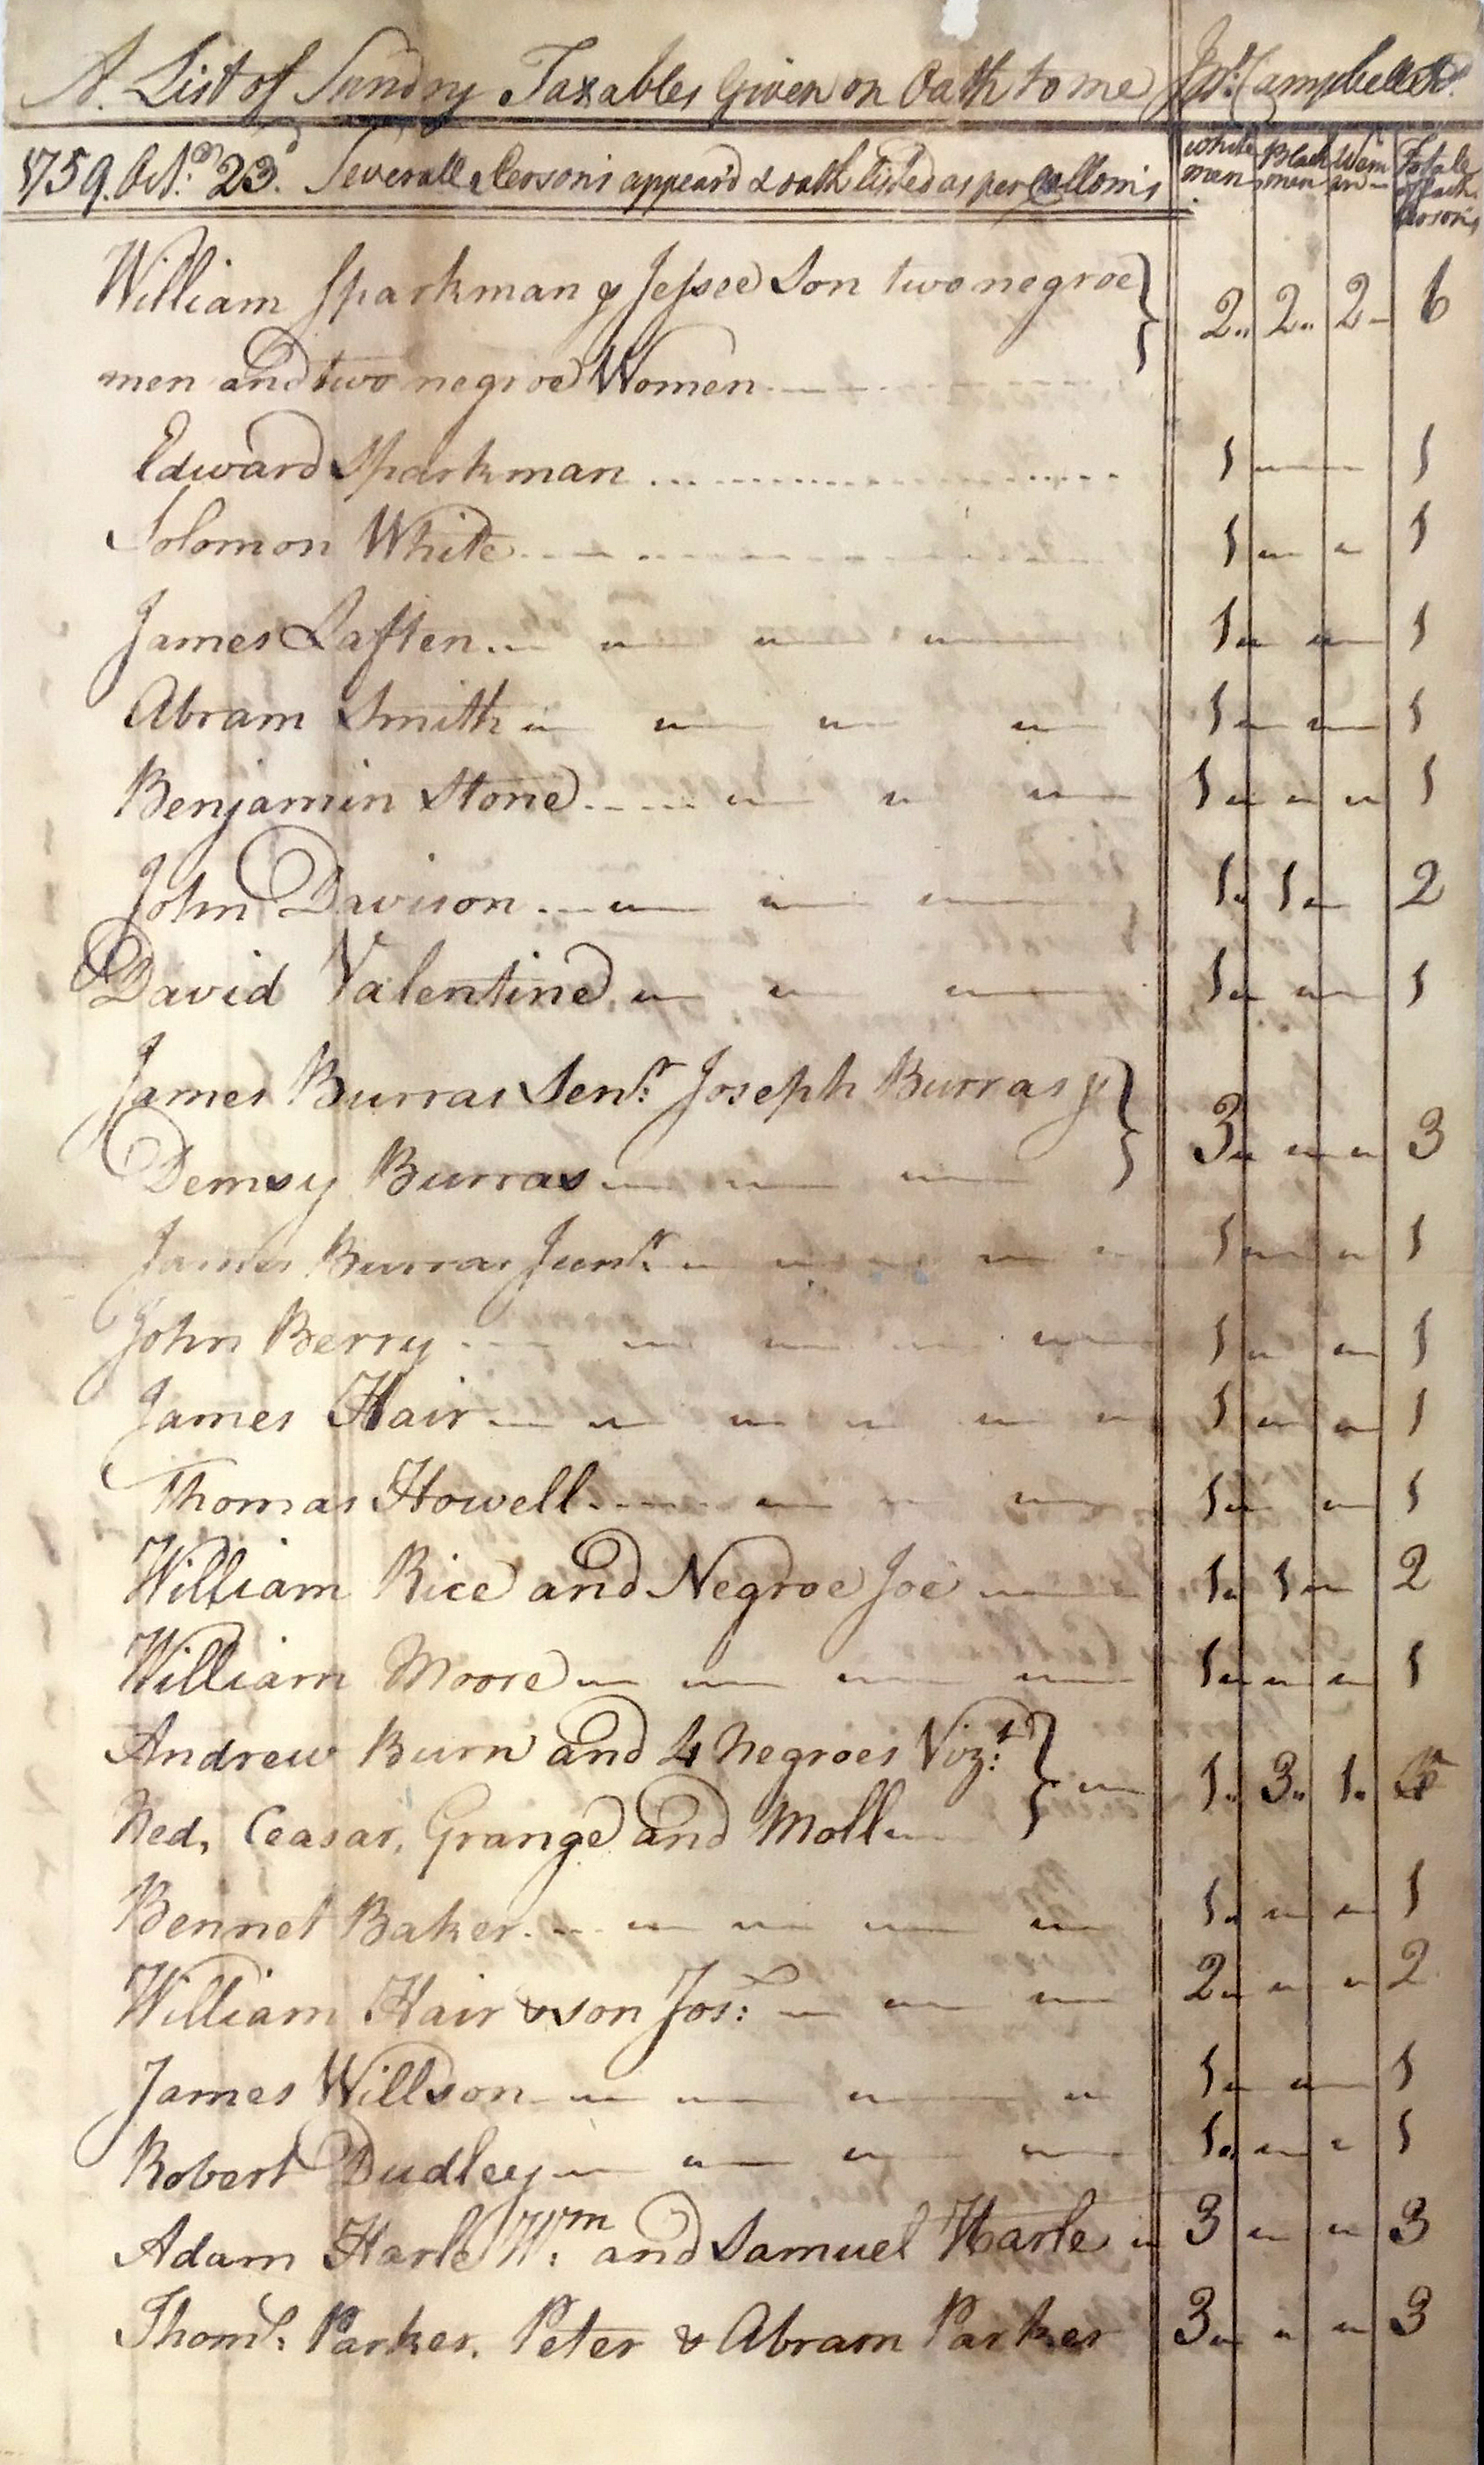 A List of Sundry Taxables Given on Oath to me Jos: Campbell
1759. Octr. 23d. Severall Persons appeard & oath listed as per Collomns
White men
Black men
Wemen
Totale of Each Persons
William Sparkman & Jessee Son two negroe } 2 2 2 6
men and two negroe Women
Edward Sparkman 1 1
Solomon White 1 1
James Laften 1 1
Abram Smith 1 1
Benjamin Stone 1 1
John Davison 1 1 2
David Valentine 1 1
James Burras Senr: Joseph Burras & } 3 3
Demsy Burras
James Burras Junr: 1 1
John Berry 1 1
James Hair 1 1
Thomas Howell 1 1
William Rice and Negroe Joe 1 1 2
William Moore 1 1
Andrew Burn and 4 Negroes Vizt: } 1 3 1 5
Ned, Ceasar, Grange and Moll
Bennet Baker 1 1
William Hair & son Jos: 2 2
James Willson 1 1
Robert Dudley 1 1
Adam Harle Wm: and Samuel Harle 3 3
Thoms: Parker, Peter & Abram Parker 3 3